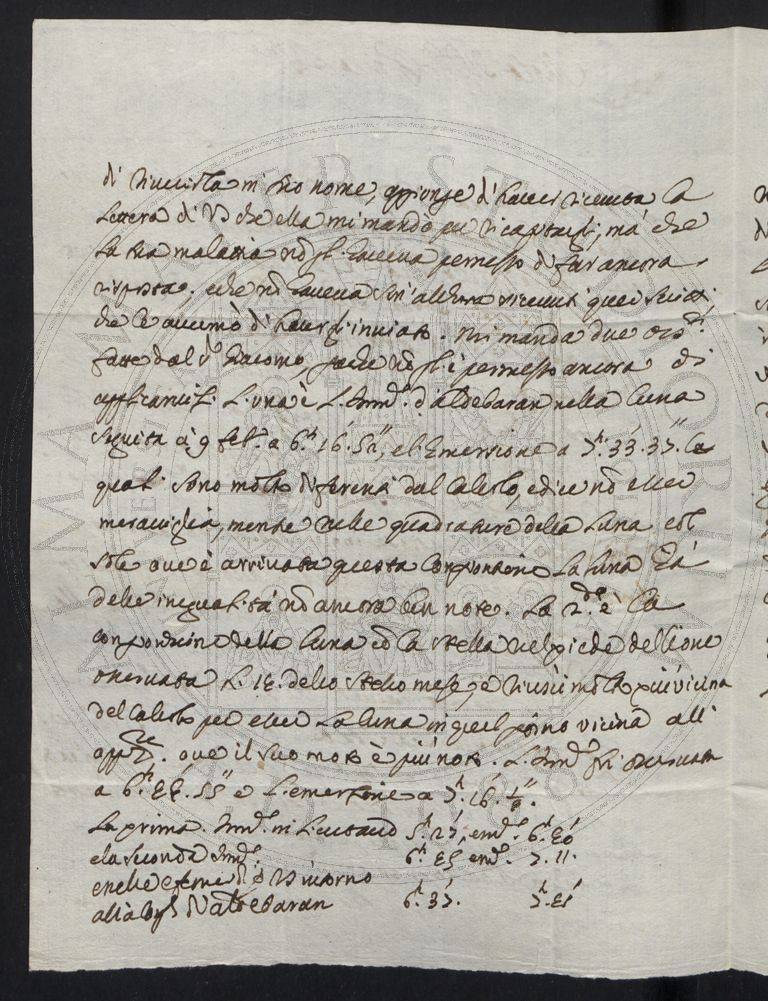 di riuerirla in suo nome, aggionge d'hauer riceuuta la
lettera di VS che ella mi mandò per ricapitargli, ma che
la sua malatia nō gli haueua permesso di far ancora
risposta, e che nō haueua sin' allora riceuuti quei
che l'auemo d'hauergli inuiato. Mi manda due oss.ni
fatte dal S.r Giacomo, perche nō gli è permesso ancora di
applicarui. L'una è L'Imm.e d'aldebaran nella luna
seguita a 9 feb.o a 6.h 16.' 52'', e l'Emersione a 7.h 33.' 37.'' le
quali sono molto diferenti dal Calcolo, e dice nō esser
merauiglia, mentre nelle quadrature della Luna col
sole oue è arriuata questa congiontione La luna hà
delle inequalità nō ancora ben note. La 2.da è la
congiontione della luna cō la stella nel piede dellione
osseruata L. 18. dello stesso mese, e riuscì molto più vicina
del calcolo per esser La luna in quel giorno vicina all'
opp.ne. oue il suo moto è più noto. L'Imm.e fù osseruata
a 6.h 88.' 55'' e L'emersione a 7.h 16.'
La prima Imm.e 5.h 27', em.e 6.h 80'
e la seconda Imm.e 6.h 85 em.e 7. 11.
enelle efeme di VS intorno
alla D'aldebaran 6.h 37. 7.h 81'